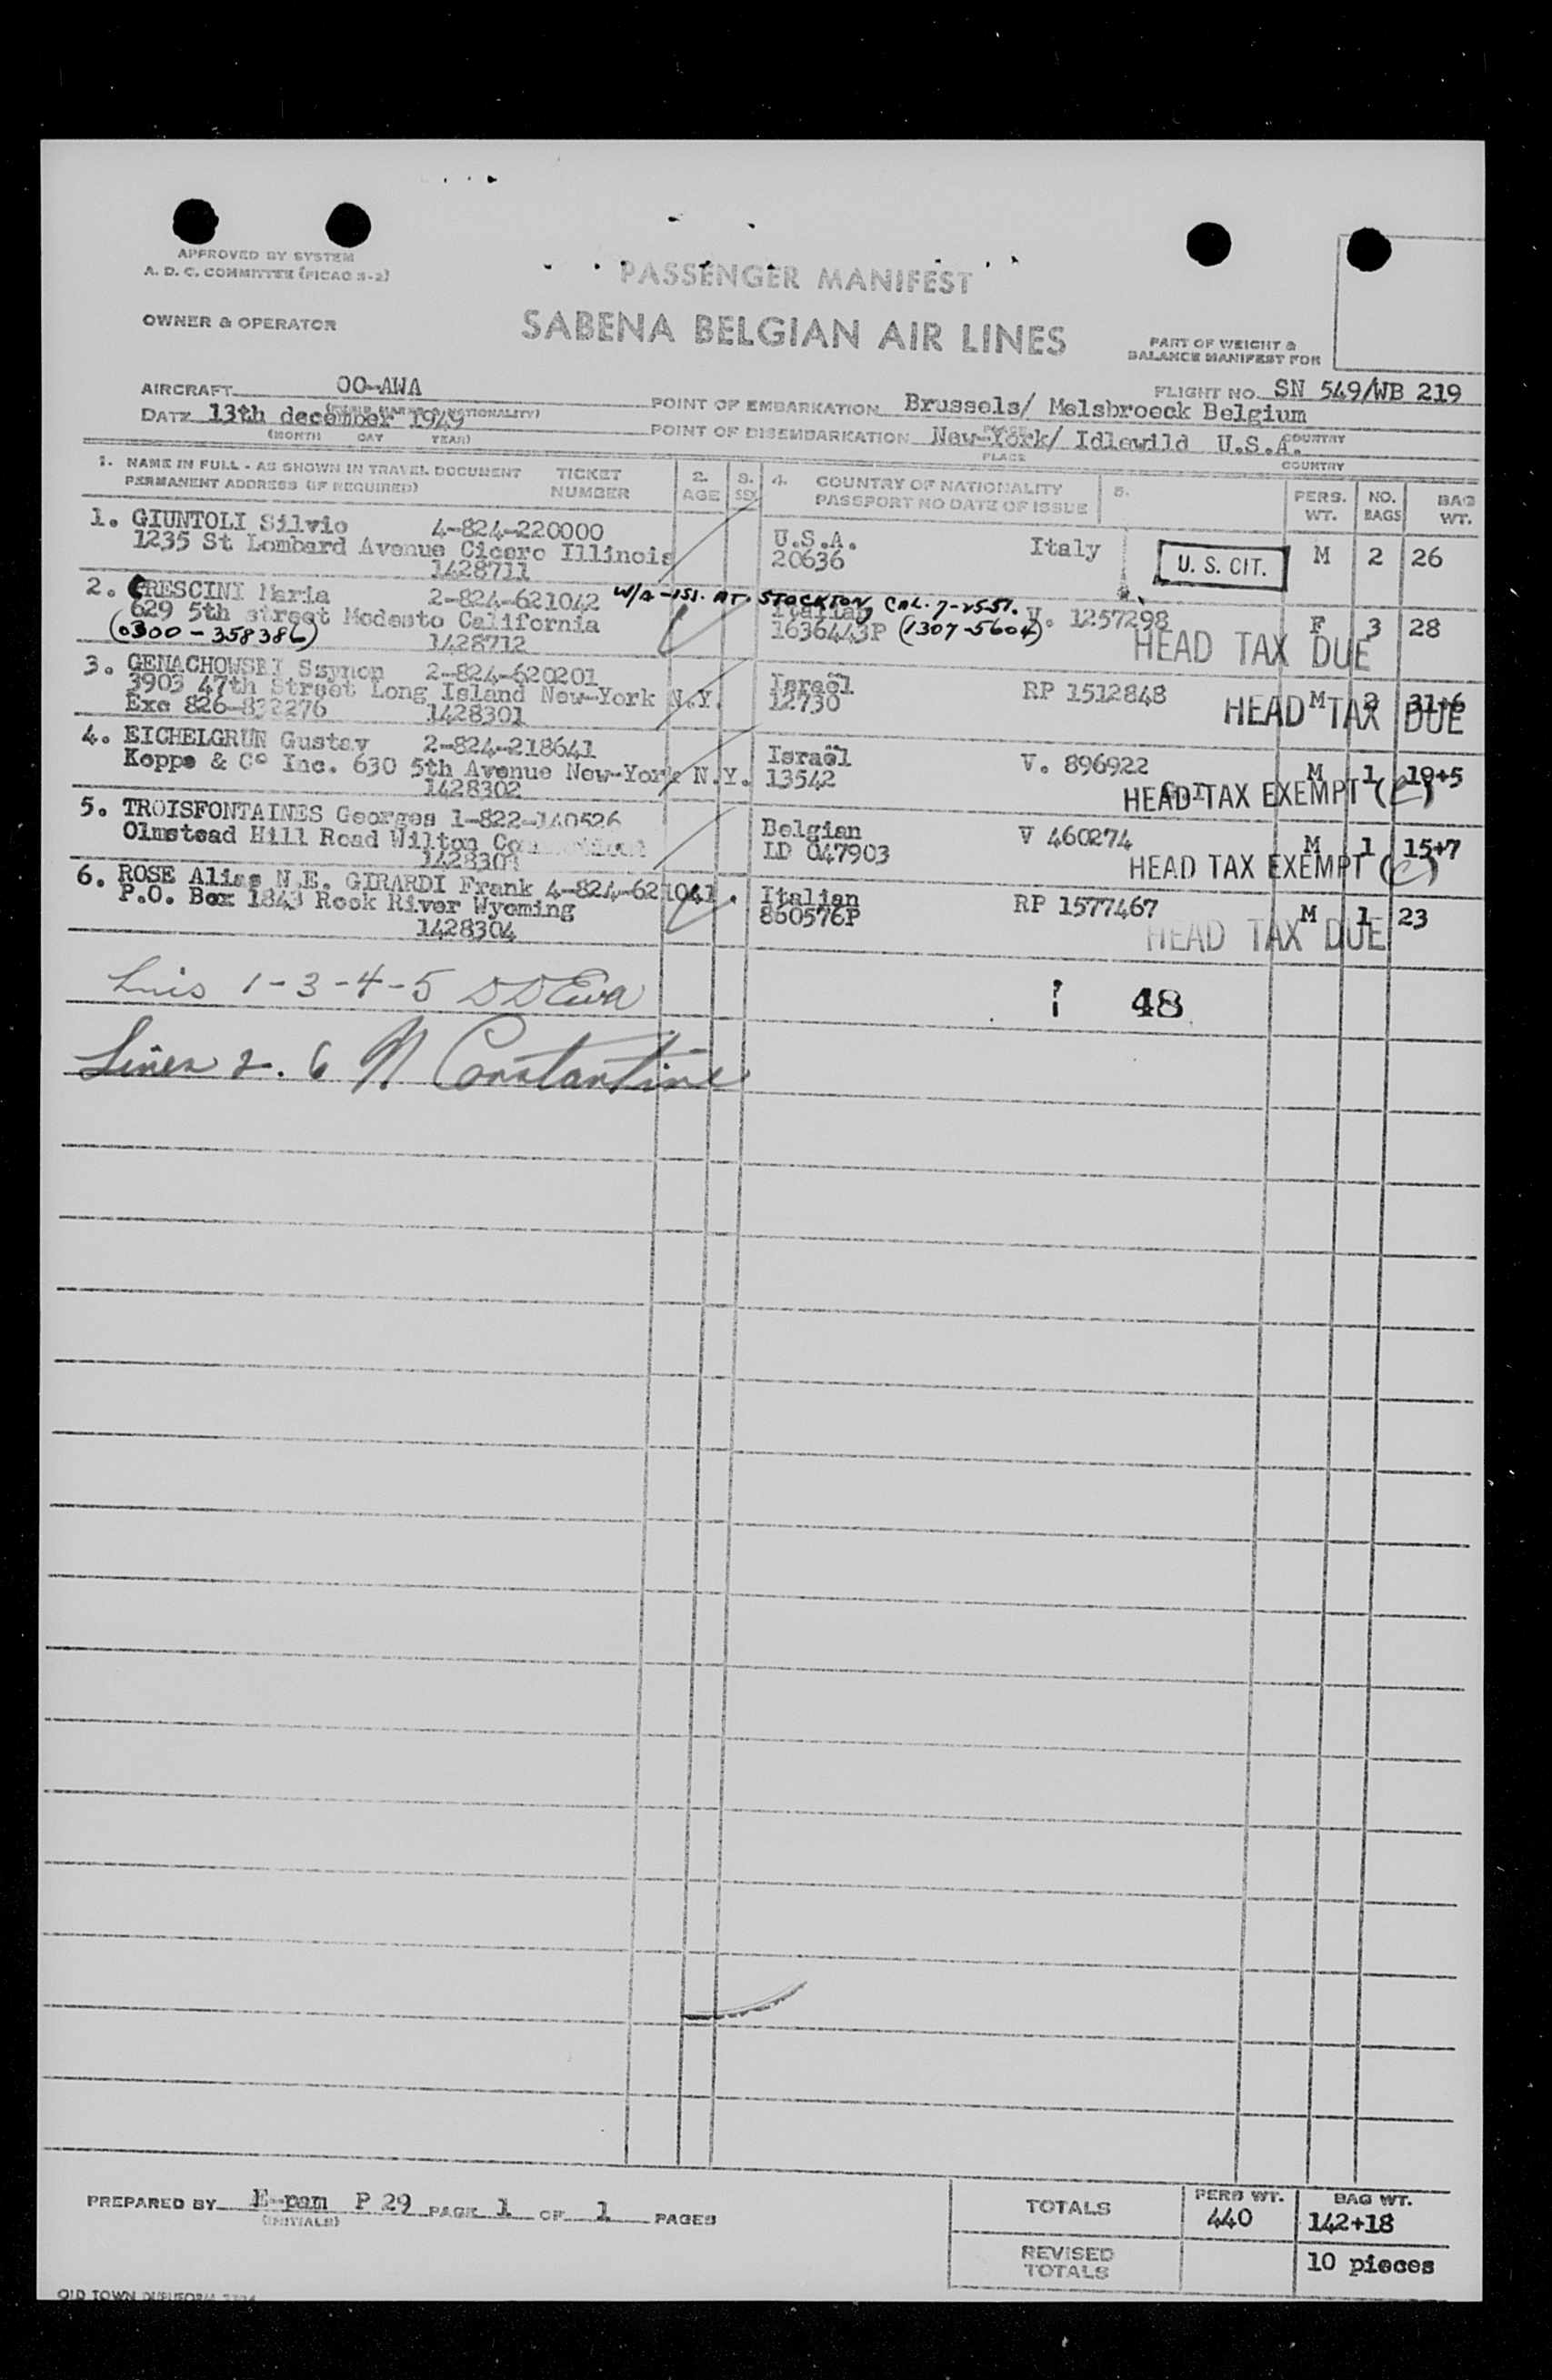 APPROVED BY SYSTEM
A. D. C. COMMITTEE (PICAO S-2)
PASSENGER MANIFEST
OWNER & OPERATOR
SABENA BELGIAN AIR LINES
PART OF WEIGHT &
BALANCE MANIFEST FOR
AIRCRAFT OO-AWA
FLIGHT NO. SN 549/WB 219
POINT OF EMBARKATION Brussels/ Melsbroeck Belgium
DATE 13th december 1949
(MONTH DAY YEAR)
PLACE COUNTRY
POINT OF DISEMBARKATION New-York/ Idlewild U.S.A.
PLACE COUNTRY
1. NAME IN FULL - AS SHOWN IN TRAVEL DOCUMENT TICKET 2. 3. 4. COUNTRY OF NATIONALITY 5. PERS. NO. BAG
PERMANENT ADDRESS (IF REQUIRED) NUMBER AGE SEX PASSPORT NO DATE OF ISSUE WT. BAGS WT.
1. GIUNTOLI Silvio 4-824-220000 U.S.A. Italy U. S. CIT. M 2 26
1235 St Lombard Avenue Cicero Illinois 20636
1428711
2. CRESCINI Maria 2-824-621042 W/A-151. AT. STOCKTON, CAL. 7-2551. Italian V. 1257298 F 3 28
629 5th street Modesto California 1636443P (1307-5604)
(0300-358386) 1428712 HEAD TAX DUE
3. GENACHOWSKI Szymon 2-824-620201 Israël RP 1512848 M 2 31+6
3903 47th Street Long Island New-York N.Y. 12730
Exc 826-832276 1428301 HEAD TAX DUE
4. EICHELGRUN Gustav 2-824-218641 Israël V. 896922 M 1 19+5
Koppe & Co Inc. 630 5th Avenue New-York N.Y. 13542
1428302 HEAD TAX EXEMPT (C)
5. TROISFONTAINES Georges 1-822-140526 Belgian V 460274 M 1 15+7
Olmstead Hill Road Wilton LD 047903
1428303 HEAD TAX EXEMPT (C)
6. ROSE Alias N.E. GIRARDI Frank 4-824-621041. Italian RP 1577467 M 1 23
P.O. Box 1843 Rock River Wyoming 860576P
1428304 HEAD TAX DUE
1-3-4-5
48
Lines 2. 6 N Constantine
PREPARED BY E-pam P 29 PAGE 1 OF 1 PAGES
(INITIALS)
TOTALS PERS WT. 440 BAG WT. 142+18
REVISED TOTALS 10 pieces